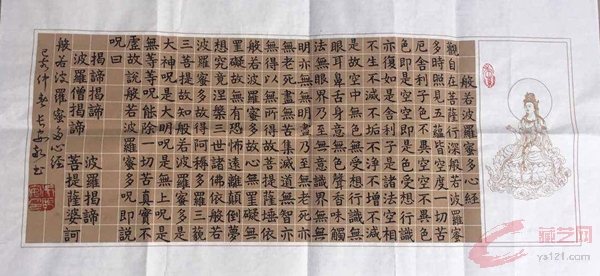 般若波羅蜜多心經
觀自在菩薩行深般若波羅蜜
多時照見五蘊皆空度一切苦
厄舍利子色不異空空不異色
色即是空空即是色受想行識
亦復如是舍利子是諸法空相
不生不滅不垢不淨不增不減
是故空中無色無受想行識無
眼耳鼻舌身意無色聲香味觸
法無眼界乃至無意識界無無
明亦無無明盡乃至無老死亦
無老死盡無苦集滅道無智亦
無得以無所得故菩提薩埵依
般若波羅蜜多故心無罣礙無
罣礙故無有恐怖遠離顛倒夢
想究竟涅槃三世諸佛依般若
波羅蜜多故得阿耨多羅三藐
三菩提故知般若波羅蜜多是
大神呪是大明呪是無上呪是
無等等呪能除一切苦真實不
虛故說般若波羅蜜多呪即說
呪曰
揭諦揭諦 波羅揭諦
波羅僧揭諦 菩提薩婆訶
般若波羅蜜多心經
藏艺网
ya121.com